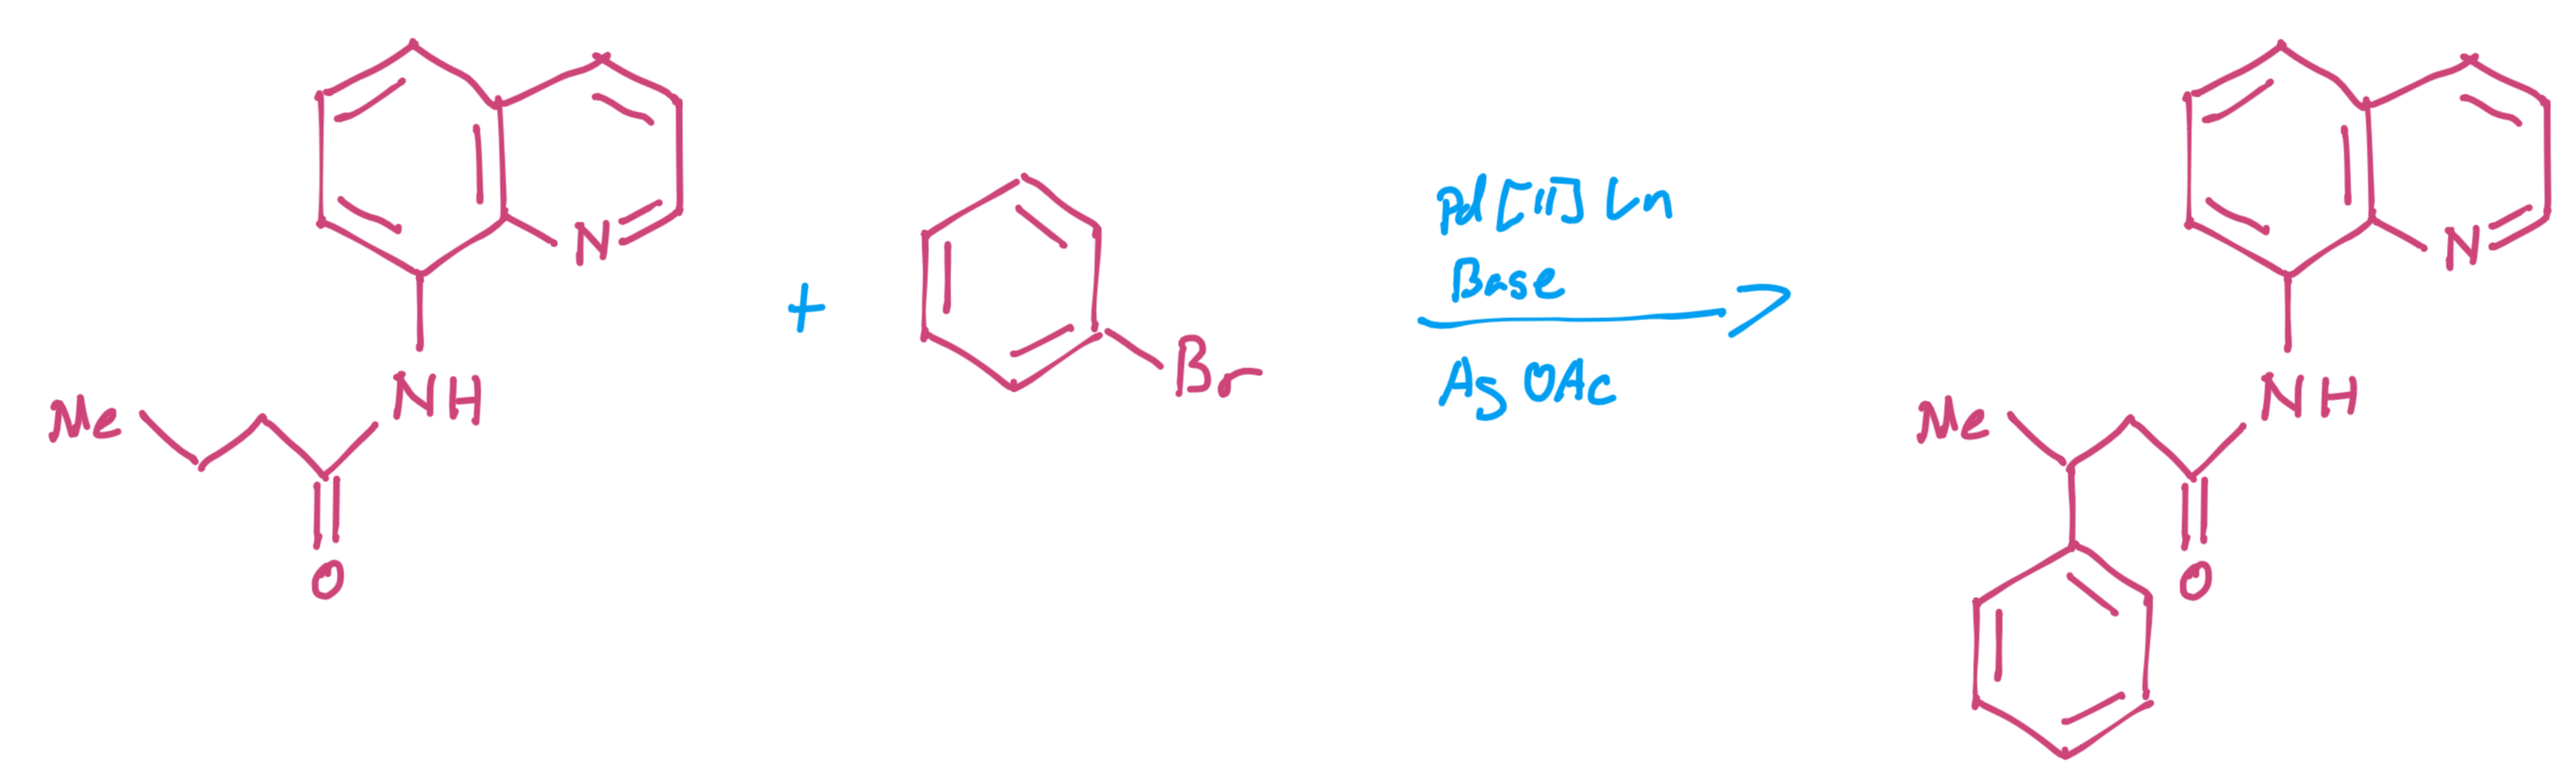 N
NH
Me
O
+
Br
Pd [ii] Ln
Base
Ag OAc
N
NH
Me
O